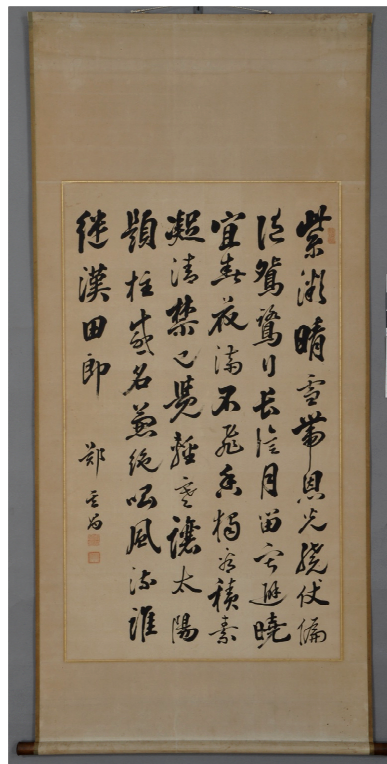 紫微晴雪帶恩光繞仗偏
隨鴛鷺行長信月留寧避曉
宜春花滿不飛香獨看積素
凝清禁已覺輕寒讓太陽
題柱盛名兼絕唱風流誰
継漢田郎
鄭